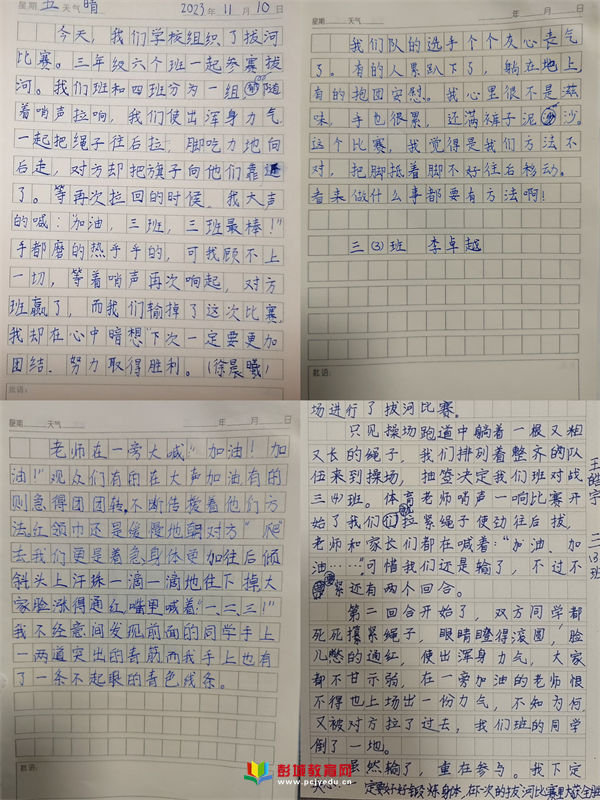 星期 五 天气 晴 2023年11月10日
今天，我们学校组织了拔河
比赛。三年级六个班一起参赛拔
河。我们班和四班分为一组，随
着哨声拉响，我们使出浑身力气
一起把绳子往后拉，脚吃力地向
后走，对方却把旗子向他们靠近
了。等再次拉回的时候，我大声
的喊：加油，三班，三班最棒！”
手都磨的热乎乎的，可我顾不上
一切，等着哨声再次响起，对方
班赢了，而我们输掉了这次比赛，
我却在心中暗想“下次一定要更加
团结、努力取得胜利。（徐晨曦）
批语：
星期 天气 年 月 日
我们队的选手个个灰心丧气
了。有的人累趴下了，躺在地上，
有的抱团安慰。我心里很不是滋
味，手也很累，还满裤子泥沙。
这个比赛，我觉得是我们方法不
对，把脚抵着脚不好往后移动。
看来做什么事都要有方法啊！
三（3）班 李卓越
批语：
星期 天气 年 月 日
老师在一旁大喊“加油！加
油！”观众们有的在大声加油有的
则急得团团转，不断传授着他们方
法，红领巾还是缓慢地朝对方“爬”
去我们更是着急，身体更加往后倾
斜头上汗珠一滴一滴地往下掉大
家脸涨得通红，嘴里喊着“一、二、三！”
我不经意间发现前面的同学手上
一两道突出的青筋而我手上也有
了一条不起眼的青色线条。
场进行了拔河比赛。
只见操场跑道中躺着一根又粗
又长的绳子，我们排列着整齐的队
伍来到操场，抽签决定我们班对战
三（4）班。体育老师哨声一响比赛开
始了我们们拉紧绳子使劲往后拔，
老师和家长们都在喊着：“加油、加
油……”可惜我们还是输了，不过不
紧还有两个回合。
第二回合开始了，双方同学都
死死攥紧绳子，眼睛瞪得滚圆，脸
儿憋的通红，使出浑身力气，大家
都不甘示弱，在一旁加油的老师恨
不得也上场出一份力气，不知为何，
又被对方拉了过去，我们班的同学
倒了一地。
虽然输了，重在参与。我下定
一定要好好锻炼身体，在下次的拔河比赛里大获全胜
王皓宇 三（3）班
彭城教育网
www.pcjyedu.cn